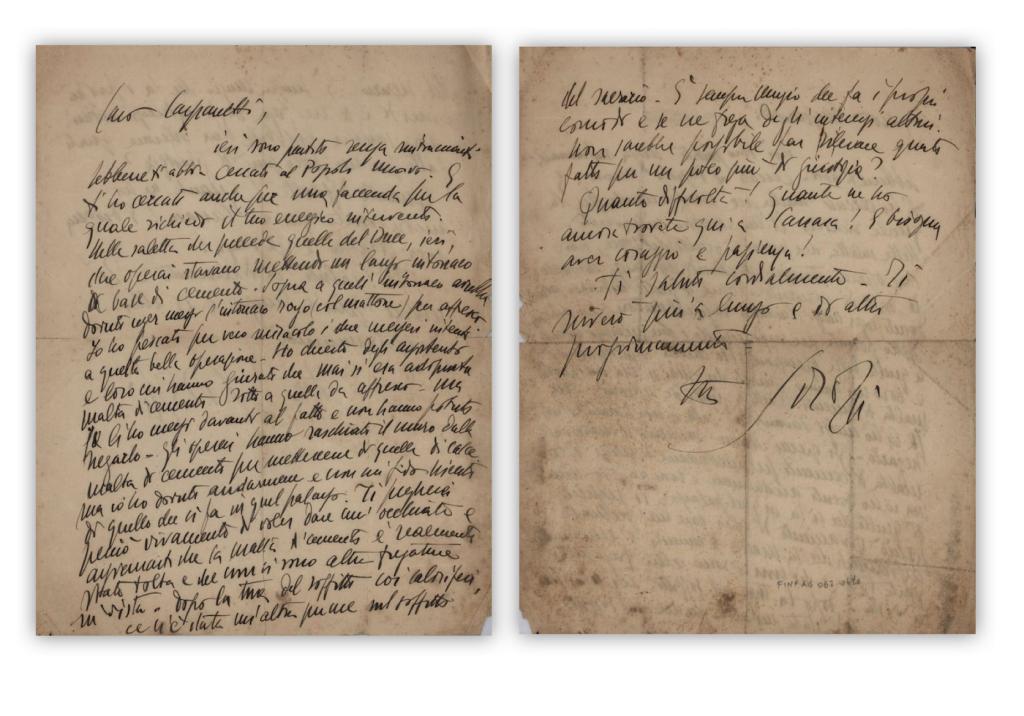 Caro Carpanetti,
ieri sono partito senza rivederti
sebbene ti abbia cercato al Popolo nuovo. E
ti ho cercato anche per una faccenda per la
quale richiedo il tuo energico intervento.
Nella saletta che precede quella del Duce, ieri,
due operai stavano mettendo un largo intonaco
di base di cemento. Sopra a quest'intonaco
dovuto l'intonaco col mattone, per affresco.
Io ho pescato per vero miracolo i due
a questa bella operazione. Ho chiesto degli
e loro mi hanno giurato che mai si era adoperata
malta di cemento sotto a quella da affresco. Ma
li ho messi davanti al fatto e non hanno potuto
negarlo. Gli operai hanno raschiato il muro dalla
malta di cemento per metterne di quella di calce
ma io ho dovuto andarmene e non mi fido niente
di quello che si fa in quel palazzo. Ti pregherei
perciò vivamente di voler dare un'occhiata e
che la malta di cemento è realmente
stata tolta e che non ci sono altre fregature
in vista. Dopo la del soffitto coi caloriferi,
ce n'è stata un'altra pure sul soffitto
del sacrario. È sempre che fa i propri
comodi e se ne frega degli interessi altrui.
Non sarebbe possibile far questo
fatto per un poco più di giustizia?
Quante difficoltà! Quante ne ho
ancora trovate qui a Carrara! E bisogna
aver coraggio e pazienza!
Ti saluto cordialmente. Ti
scriverò più a lungo e di altro
prossimamente
tuo Sironi